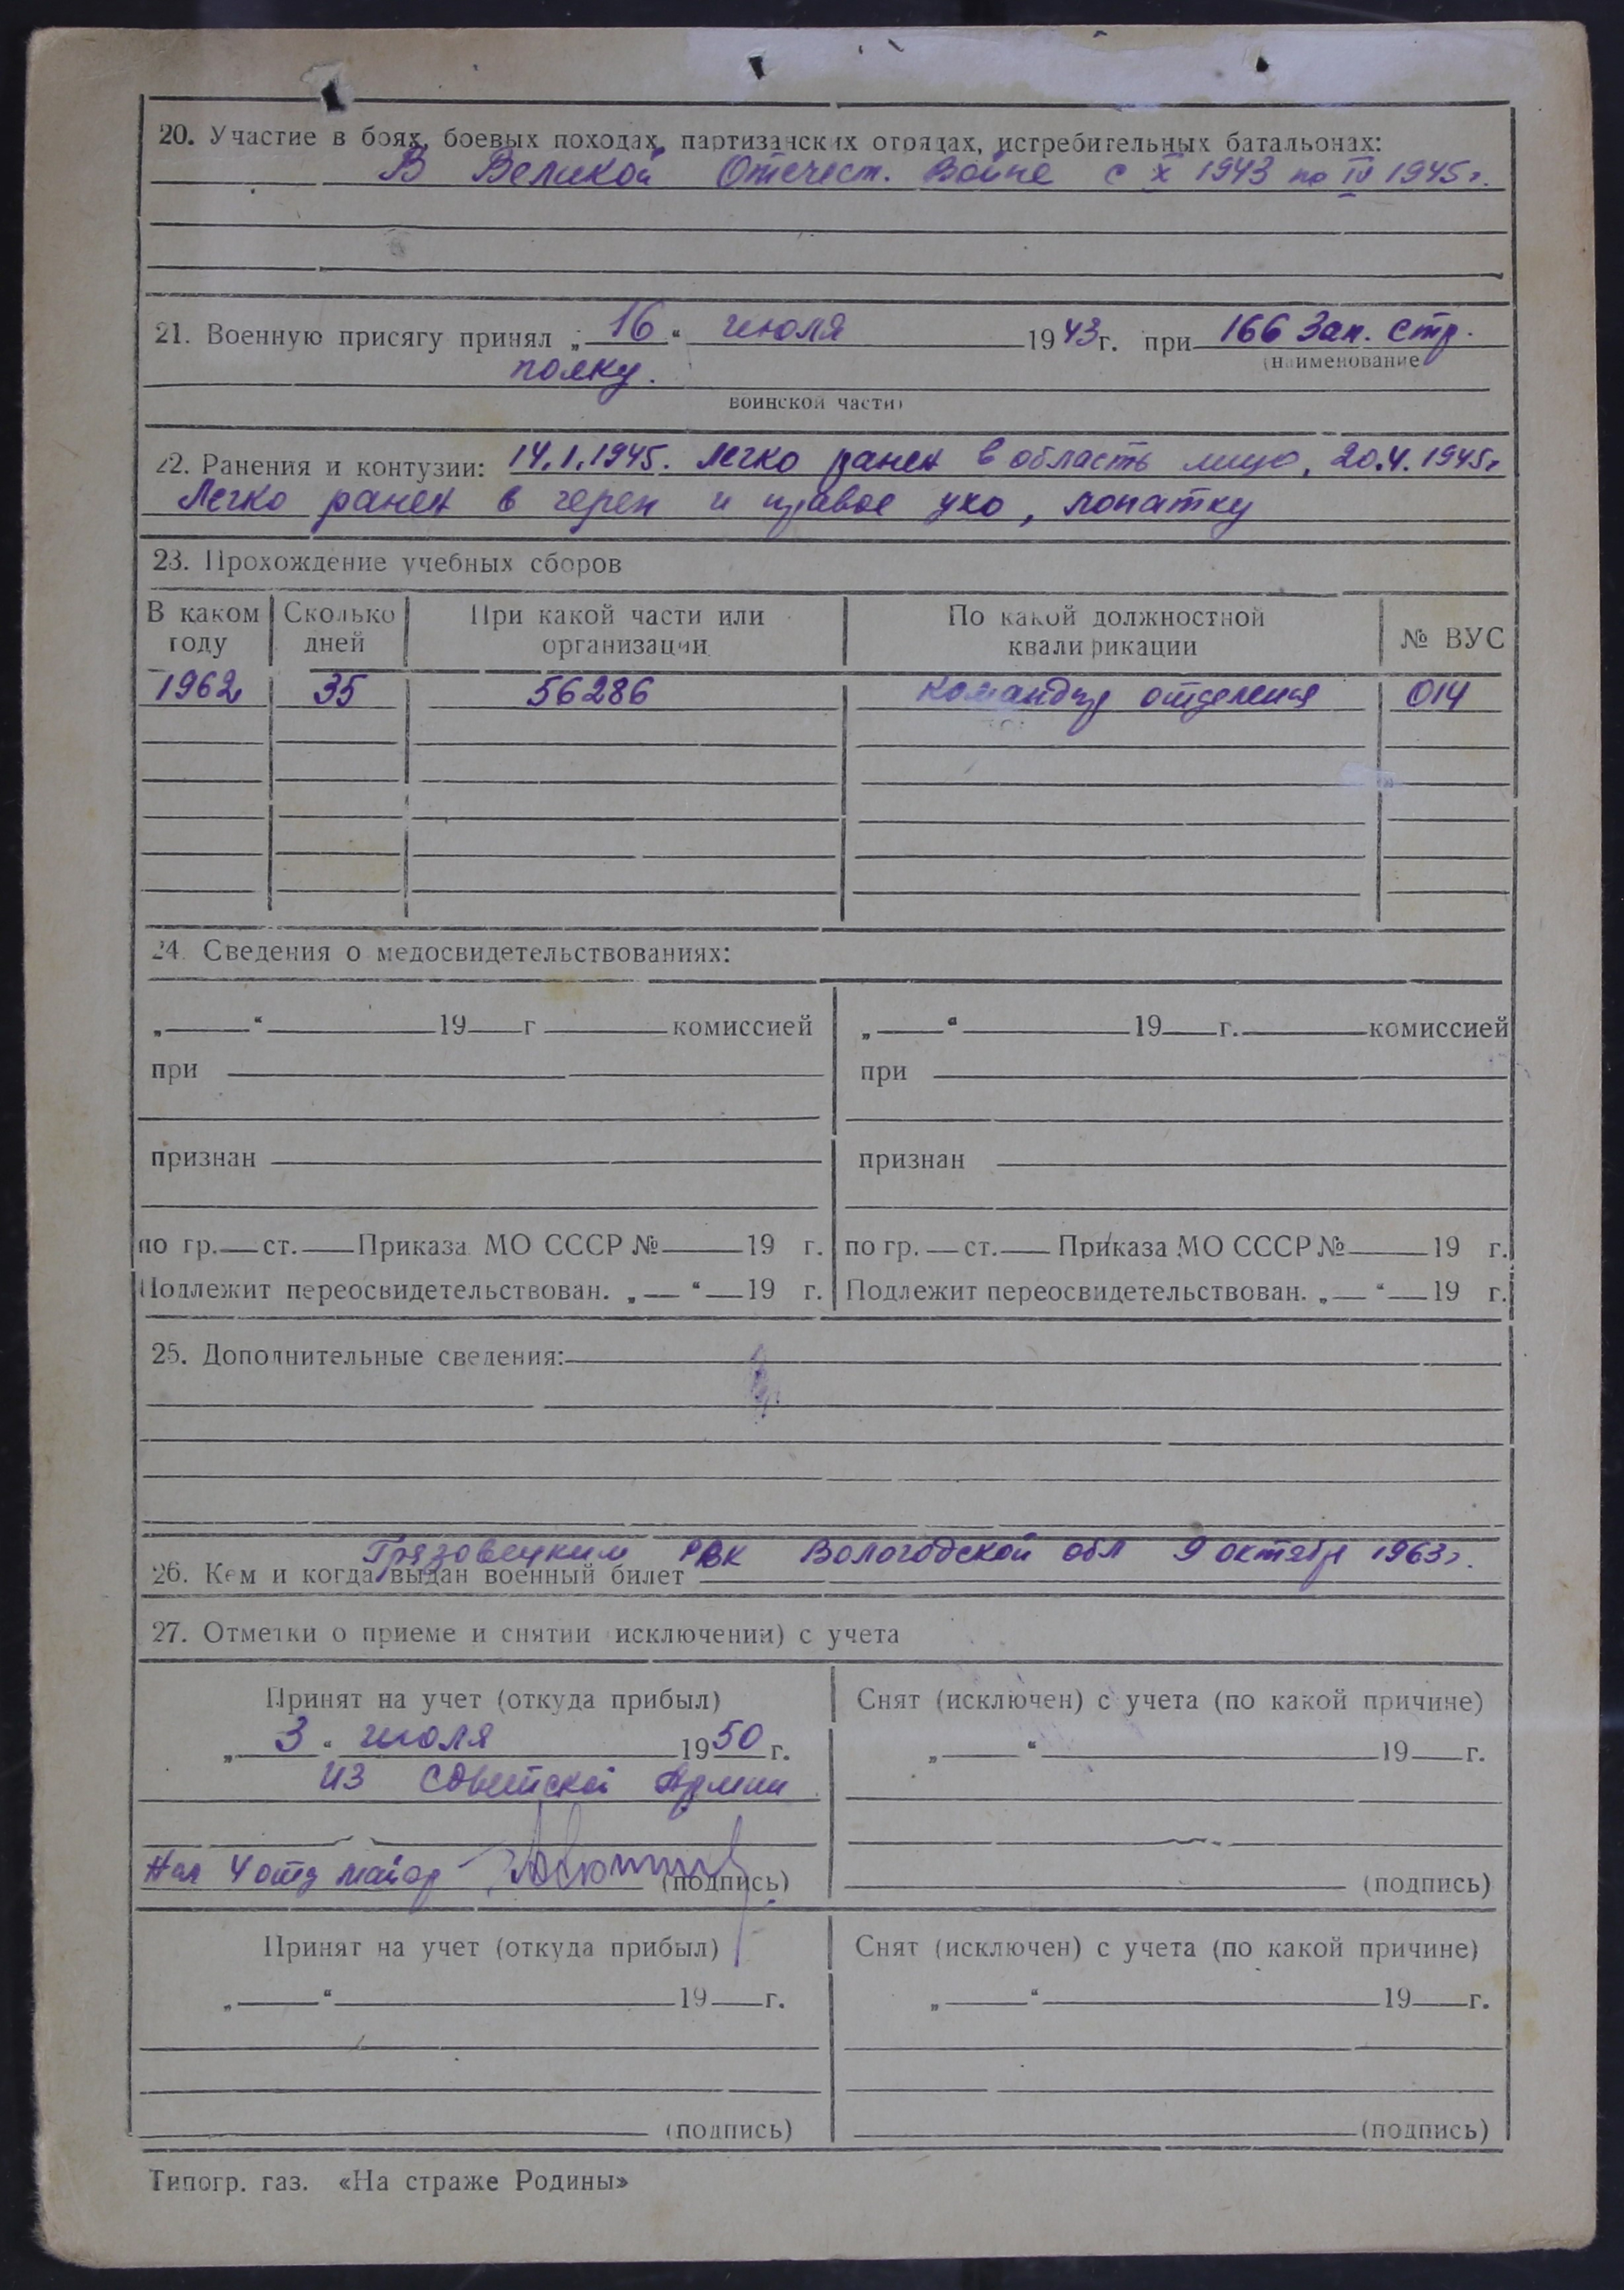 20. Участие в боях, боевых походах, партизанских отрядах, истребительных батальонах:
В Великой Отечест. войне с X 1943 по IV 1945г.
21. Военную присягу принял „16“ июля 1943г. при 166 Зап. стр.
(наименование
полку.
воинской части)
22. Ранения и контузии: 14.1.1945. легко ранен в область лица, 20.4.1945г
легко ранен в череп и правое ухо, лопатку
23. Прохождение учебных сборов
В каком году Сколько дней При какой части или организации По какой должностной квалификации № ВУС
1962 35 56286 командир отделения 014
24. Сведения о медосвидетельствованиях:
„ “ 19 г комиссией „ “ 19 г. комиссией
при при
признан признан
по гр. ст. Приказа МО СССР № 19 г. по гр. ст. Приказа МО СССР № 19 г.
Подлежит переосвидетельствован. „ “ 19 г. Подлежит переосвидетельствован. „ “ 19 г.
25. Дополнительные сведения:
26. Кем и когда выдан военный билет Грязовецким РВК Вологодской обл 9 октября 1963г.
27. Отметки о приеме и снятии исключении) с учета
Принят на учет (откуда прибыл) Снят (исключен) с учета (по какой причине)
„3“ июля 1950г. „ “ 19 г.
из Советской Армии
Нач 4 отд майор (подпись) (подпись)
Принят на учет (откуда прибыл) Снят (исключен) с учета (по какой причине)
„ “ 19 г. „ “ 19 г.
(подпись) (подпись)
Типогр. газ. «На страже Родины»